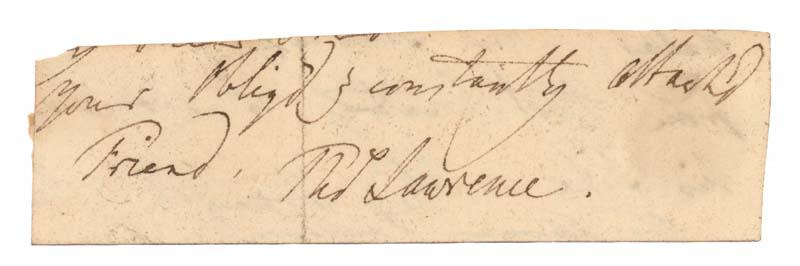 your Oblig'd & constantly attach'd
Friend. Tho.s Lawrence.